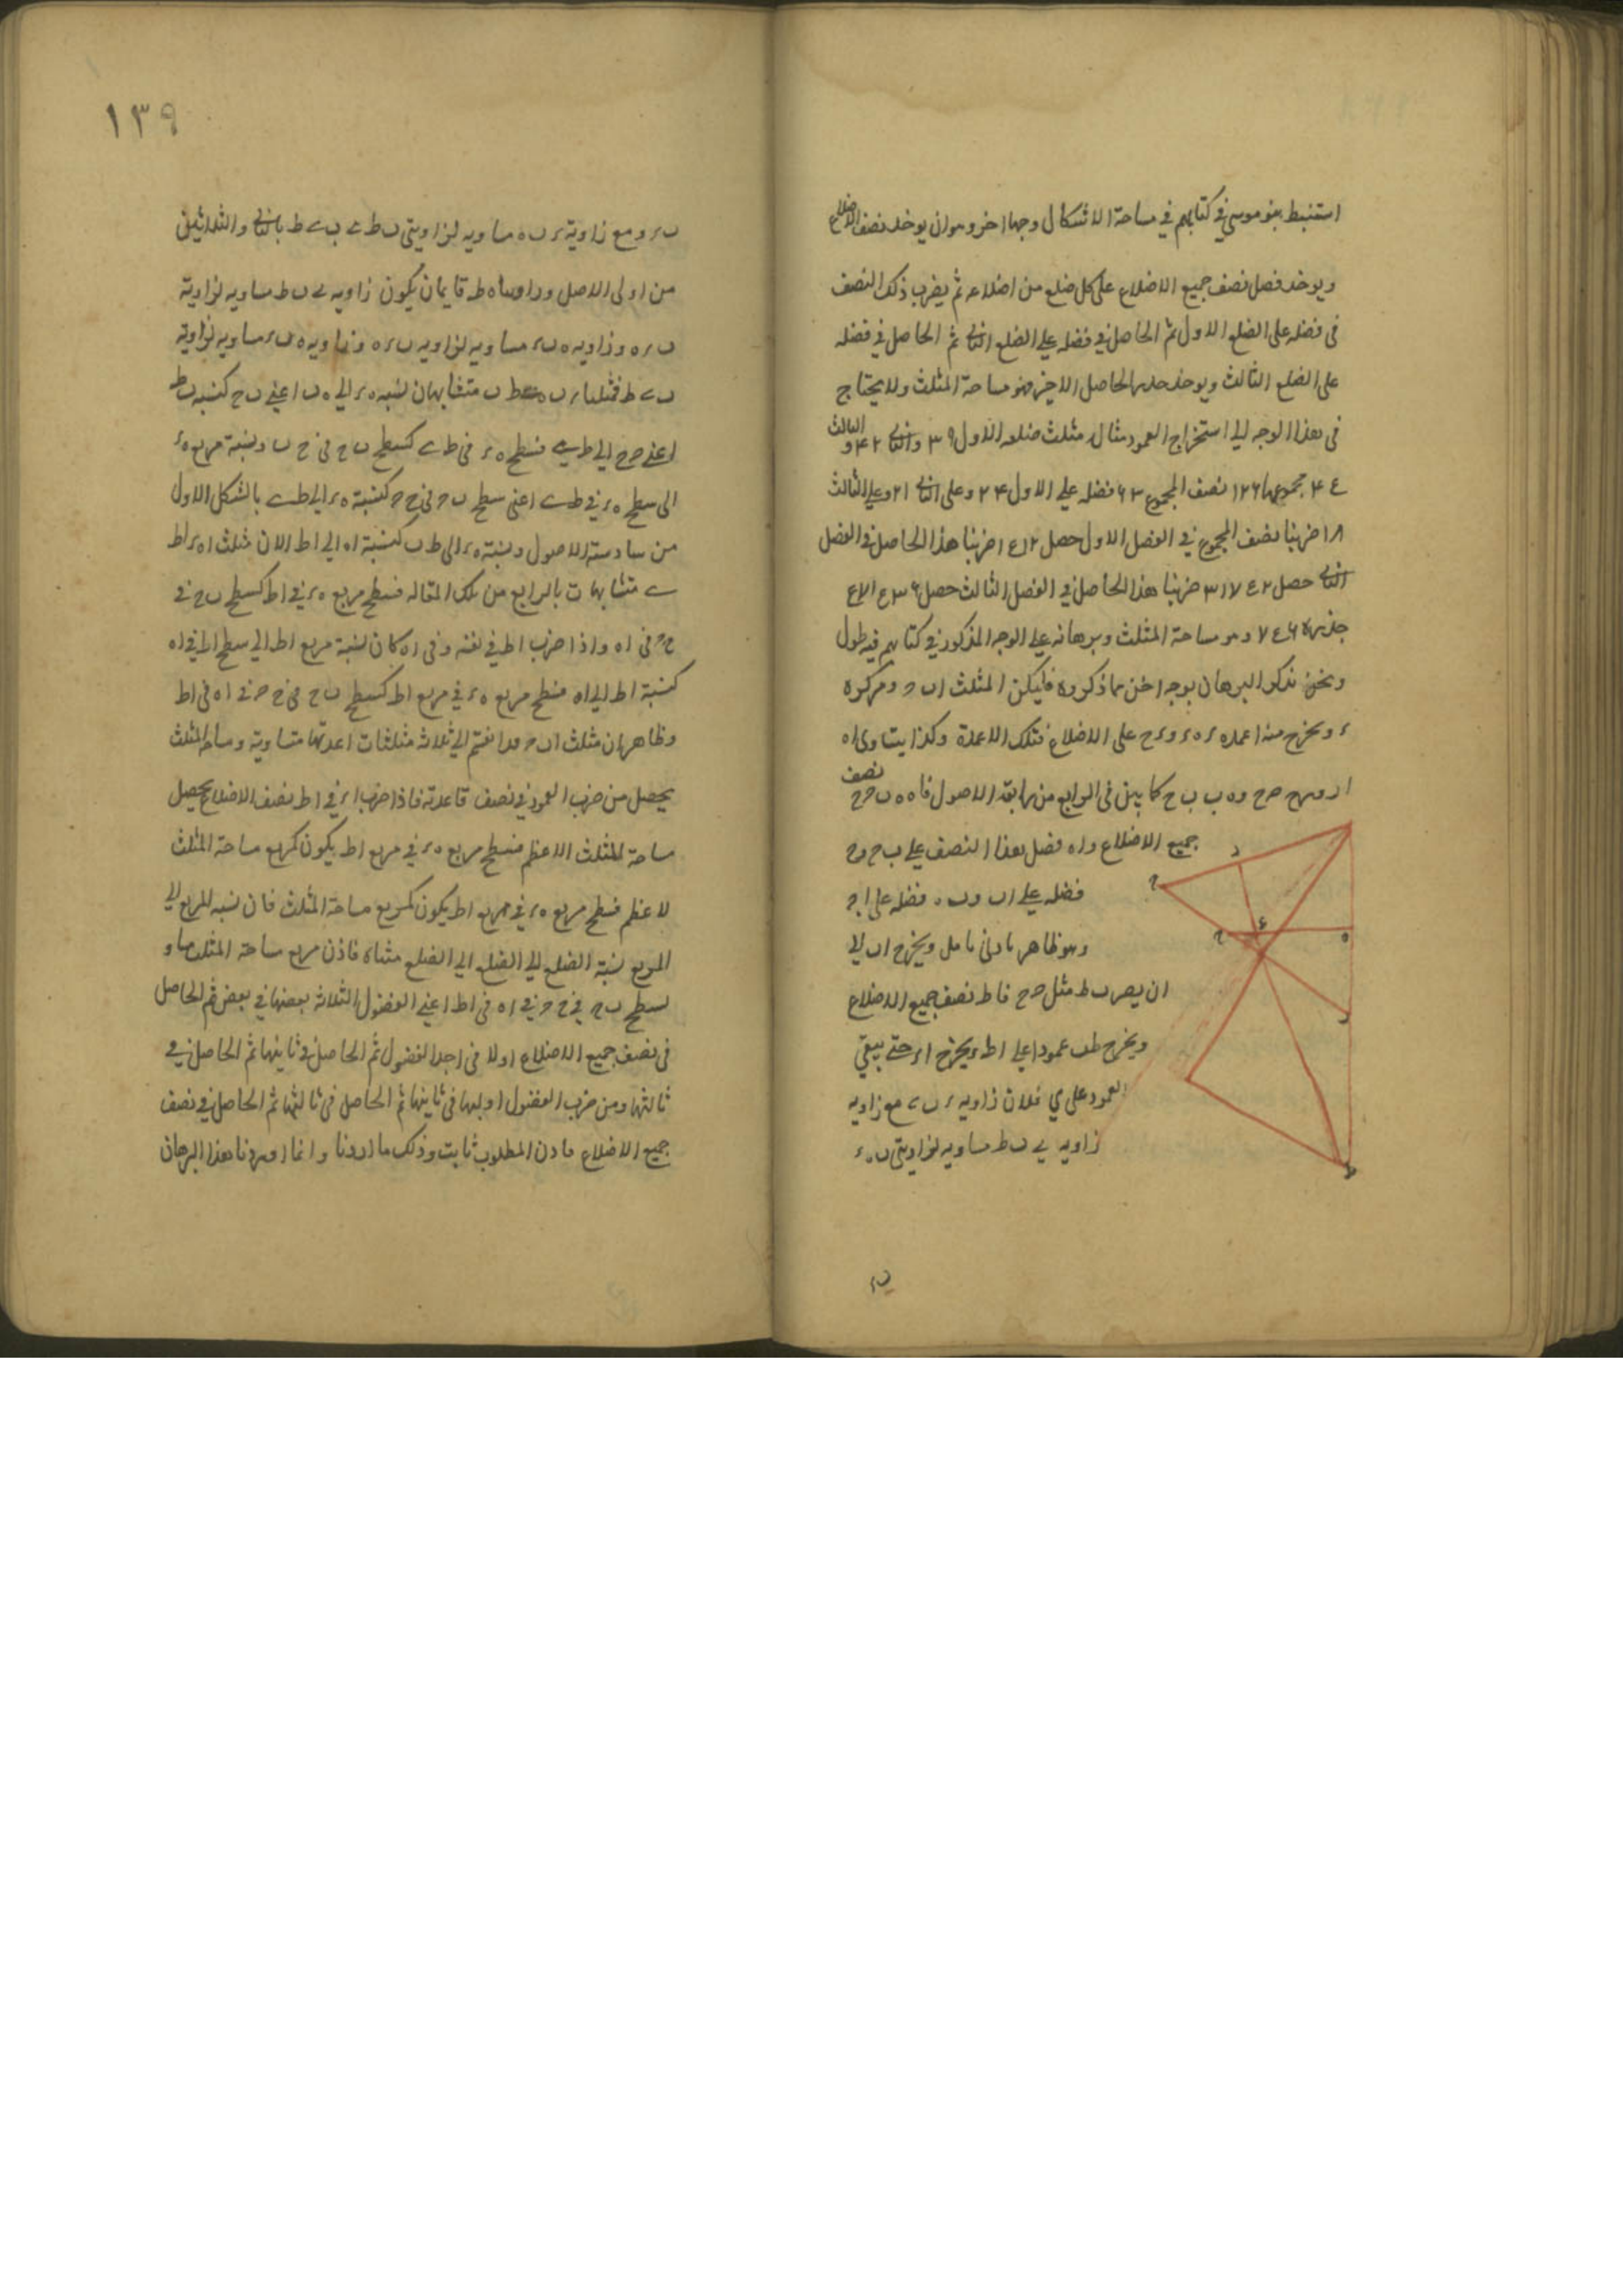 استنبط بنو موسى في كتابهم في مساحة الاشكال وجها اخر وهو ان يوخذ نصف الاضلاع
ويوخذ فضل نصف جميع الاضلاع على كل ضلع من اضلاعه ثم يضرب ذلك النصف
فى فضله على الضلع الاول ثم الحاصل في فضله على الضلع الثانى ثم الحاصل في فضله
على الضلع الثالث ويوخذ جذر الحاصل الاخير فهو مساحة المثلث ولا يحتاج
فى هذا الوجه الى استخراج العمود مثال مثلث ضلعه الاول ٣٩ والثانى ٤٢ والثالث
٤٥ مجموعها ١٢٦ نصف المجموع ٦٣ فضله على الاول ٢٤ وعلى الثانى ٢١ وعلى الثالث
١٨ ضربنا نصف المجموع في الفضل الاول حصل ١٥١٢ ضربنا هذا الحاصل في الفضل
الثانى حصل ٣١٧٥٢ ضربنا هذا الحاصل في الفضل الثالث حصل
جذره ٧٥٦ وهو مساحة المثلث وبرهانه على الوجه المذكور في كتابهم فيه طول
ونحن نذكر البرهان بوجه اخف مما ذكروه فليكن المثلث ا ب ح ومركزه
ء ويخرج منه اعمدة ء ه ء ر ء ح على الاضلاع فتلك الاعمدة وكذا يتساوى ا ه
ا ر و ر ح ح ح و ه ب ب ح كما يبين فى الرابع من رابعة الاصول فا ه ه ب ح ح نصف
جميع الاضلاع و ا ه فضل هذا النصف على ب ح و ح ح
فضله على ا ب و ب ه فضله على ا ح
وهو ظاهر بادنى تامل ويخرج ا ب الى
ان يصير ب ط مثل ح ح فا ط نصف جميع الاضلاع
ويخرج ط ى عمودا على ا ط ويخرج ا ء حتى يبقى
العمود على ى فلان زاويه ء ب ى مع زاويه
زاويه ى ب ط مساويه لزاويتى ب ه ء
ب ء
١٣٩
ب ء و مع زاوية ء ب ه مساويه لزاويتى ب ط ى ب ى ط بالثانى والثلاثين
من اولى الاصل وزاويتا ه ط قايمتان يكون زاويه ى ب ط مساويه لزاوية
ب ء ه وزاويه ه ب ء مساويه لزاويه ب ى ط
ب ى ط فمثلثا ء ب ه ى ط ب متشابهان نسبه ه ء الى ه ب اعنى ب ح كنسبه ب ط
اعنى ح ح الى ط ى فسطح ه ء فى ط ى كسطح ب ح فى ح ح ونسبة مربع ه ء
الى سطح ه ء في ط ى اعنى سطح ب ح في ح ح كنسبة ه ء الى ط ى بالشكل الاول
من سادسة الاصول ونسبة ه ء الى ط ى كنسبة ا ه الى ا ط لان مثلث ا ه ء ا ط
ى متشابهات بالرابع من تلك المقاله فسطح مربع ه ء في ا ط كسطح ب ح في
ح ح فى ا ه واذا ضرب ا ط في نفسه وفى ا ه كان نسبة مربع ا ط الى سطح ا ط في ا ه
كنسبة ا ط الى ا ه فسطح مربع ه ء في مربع ا ط كسطح ب ح فى ح ح فى ا ه فى ا ط
وظاهر ان مثلث ا ب ح قد انقسم الى ثلاثة مثلثات اعمدتها متساوية ومساحة المثلث
يحصل من ضرب العمود في نصف قاعدته فاذا ضرب ء ه في ا ط نصف الاضلاع يحصل
مساحة المثلث الاعظم فسطح مربع ه ء في مربع ا ط يكون كمربع مساحة المثلث
لاعظم فسطح مربع ه ء في مربع ا ط يكون كمربع مساحة المثلث فان نسبه المربع الى
المربع نسبة الضلع الى الضلع الى الضلع مثناه فاذن مربع مساحة المثلث مساو
لسطح ب ح في ح ح في ا ه فى ا ط اعنى الفضول الثلاثة بعضها في بعض ثم الحاصل
فى نصف جميع الاضلاع اولا فى احد الفضول ثم الحاصل في ثانيها ثم الحاصل في
ثالثها ومن ضرب الفضول اولها فى ثانيها ثم الحاصل فى ثالثها ثم الحاصل في نصف
جميع الاضلاع فاذن المطلوب ثابت وذلك ما اردنا وانما اوردنا هذا البرهان